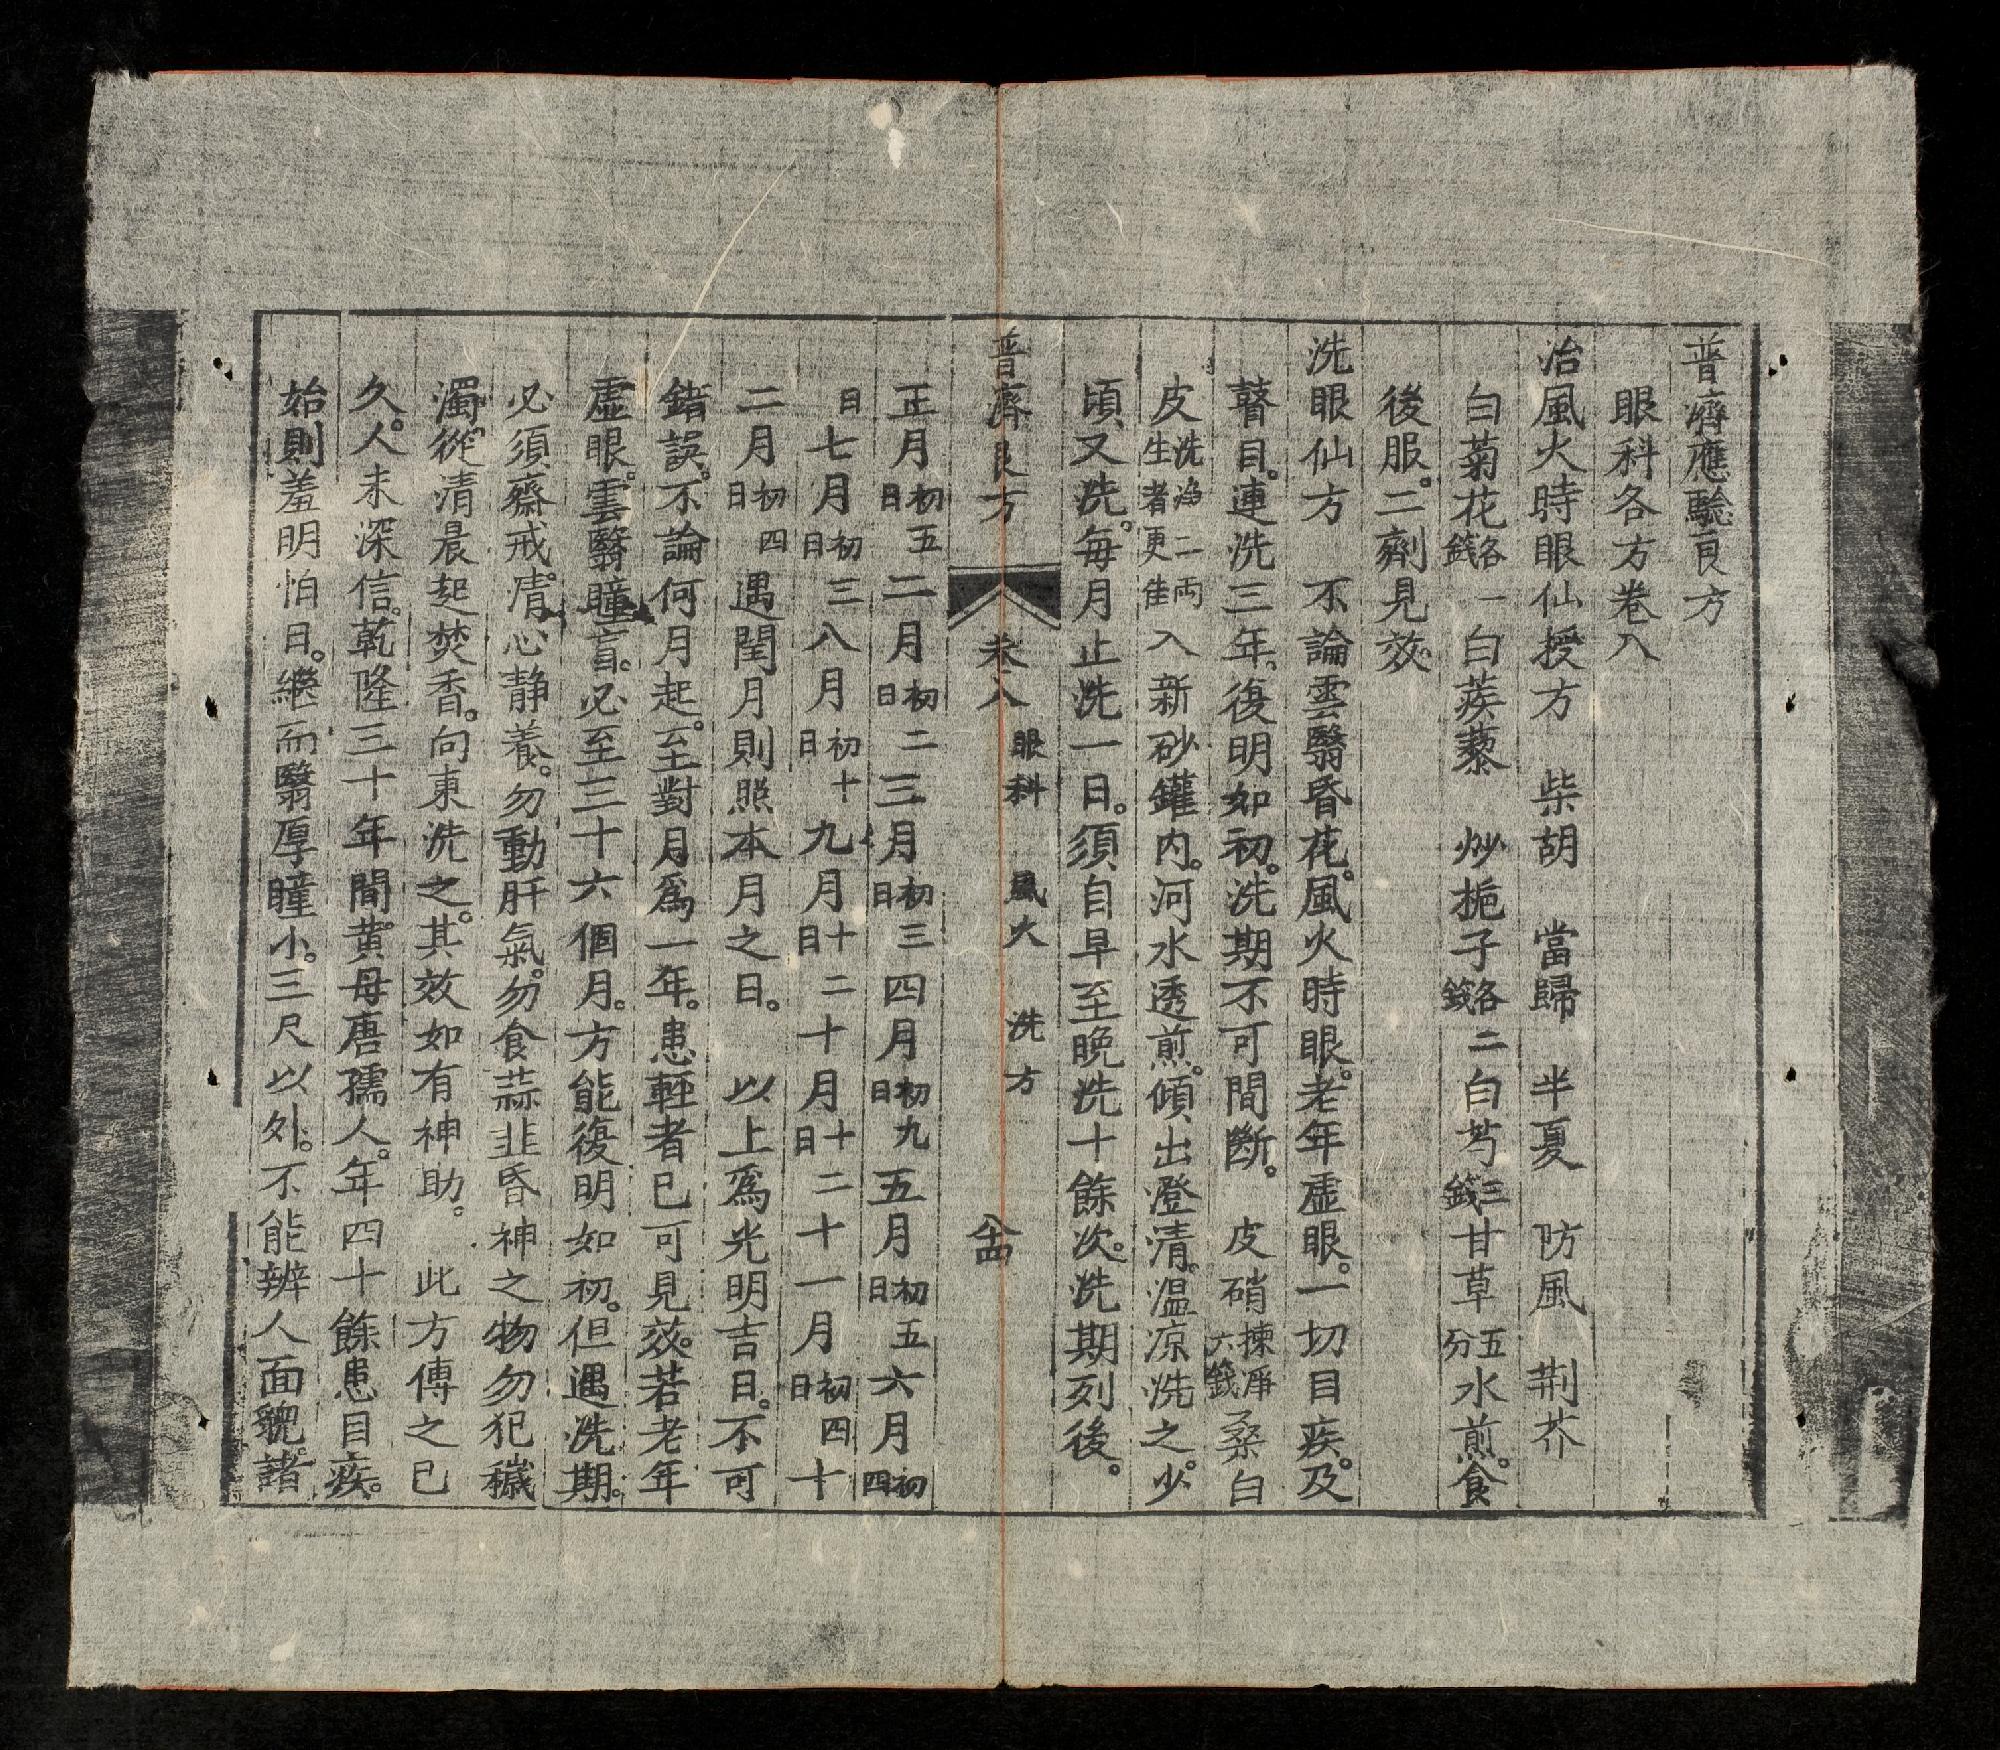 普濟應驗良方
眼科各方卷八
治風火時眼仙授方　柴胡　當歸　半夏　防風　荆芥
白菊花各一錢　白蒺藜　炒梔子各二錢　白芍三錢　甘草五分　水煎。食
後服。二劑見效
洗眼仙方　不論雲翳昏花。風火時眼。老年虛眼。一切目疾。及
瞽目。連洗三年。復明如初。洗期不可間斷。　皮硝揀淨六錢　桑白
皮洗淨二両生者更佳　入新砂鑵内。河水透煎。傾出澄清。温凉洗之。少
頃又洗。每月止洗一日。須自早至晚洗十餘次。洗期列後。
普濟良方　卷八　眼科　風火　洗方
正月初五日　二月初二日　三月初三日　四月初九日　五月初五日　六月初四
日　七月初三日　八月初十日　九月十二日　十月十二日　十一月初四日　十
二月初四日　遇閏月則照本月之日。　以上爲光明吉日。不可
錯誤。不論何月起。至對月爲一年。患輕者已可見效。若老年
虛眼。雲翳瞳盲。必至三十六個月。方能復明如初。但遇洗期。
必須齋戒。清心静養。勿動肝氣。勿食蒜韭昏神之物勿犯穢
濁。從清晨起焚香。向東洗之。其效如有神助。　此方傳之已
久。人未深信。乾隆三十年間。黄母唐孺人。年四十餘患目疾。
始則羞明怕日。繼而翳厚瞳小。三尺以外。不能辨人面貌。諸